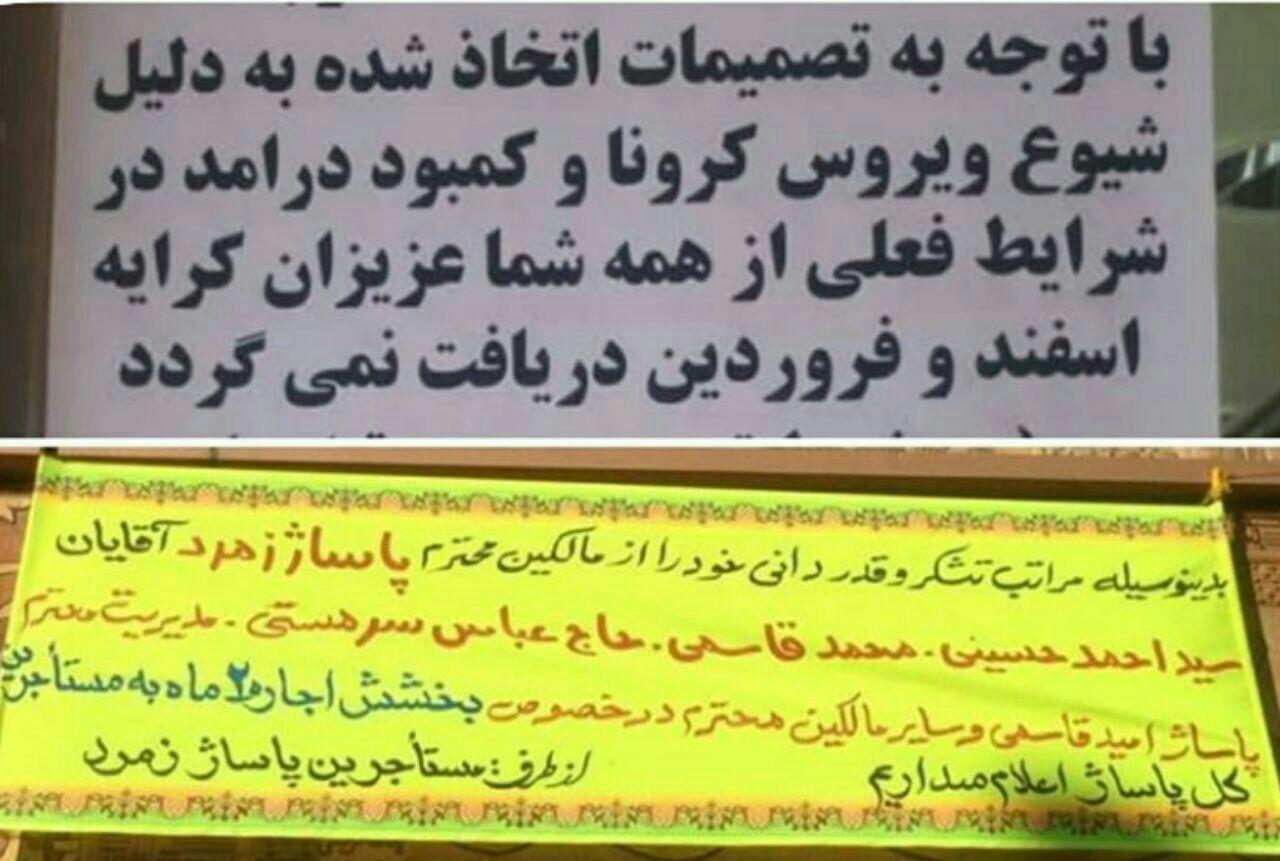 با توجه به تصمیمات اتخاذ شده به دلیل
شیوع ویروس کرونا و کمبود درامد در
شرایط فعلی از همه شما عزیزان کرایه
اسفند و فروردین دریافت نمی گردد
بدینوسیله مراتب تشکر و قدردانی خود را از مالکین محترم پاساژ زمرد آقایان
سید احمد حسینی . محمد قاسمی . حاج عباس سرمستی . مدیریت محترم
پاساژ امید قاسمی و سایر مالکین محترم در خصوص بخشش اجاره ۲ ماه به مستأجرین
کل پاساژ اعلام میداریم از طرف: مستأجرین پاساژ زمرد